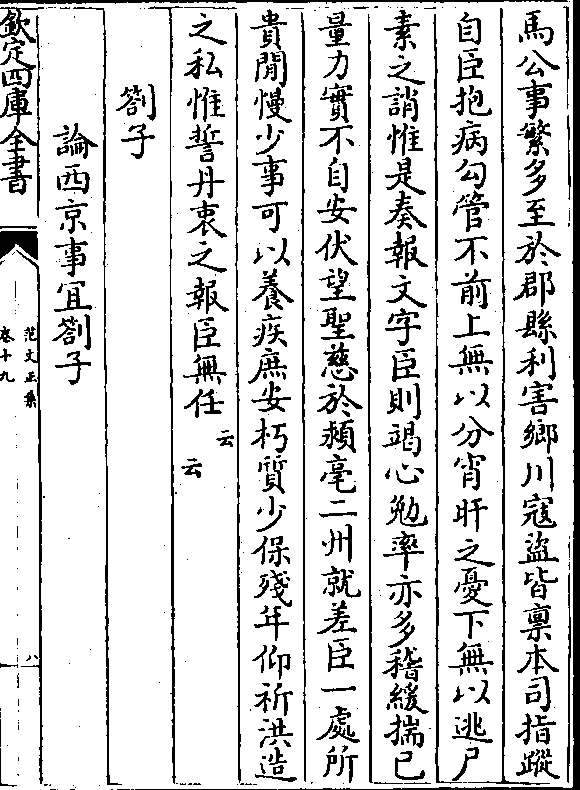 馬公事繁多至於郡縣利害鄉川寇盜皆禀本司指蹤
自臣抱病勾管不前上無以分宵旰之憂下無以逃尸
素之誚惟是奏報文字臣則竭心勉率亦多稽緩揣已
量力實不自安伏望聖慈於潁亳二州就差臣一處所
貴閒慢少事可以養疾庶安朽質少保殘年仰祈洪造
之私惟誓丹衷之報臣無任云云
劄子
論西京事宜劄子
欽定四庫全書
范文正集
卷十九
八